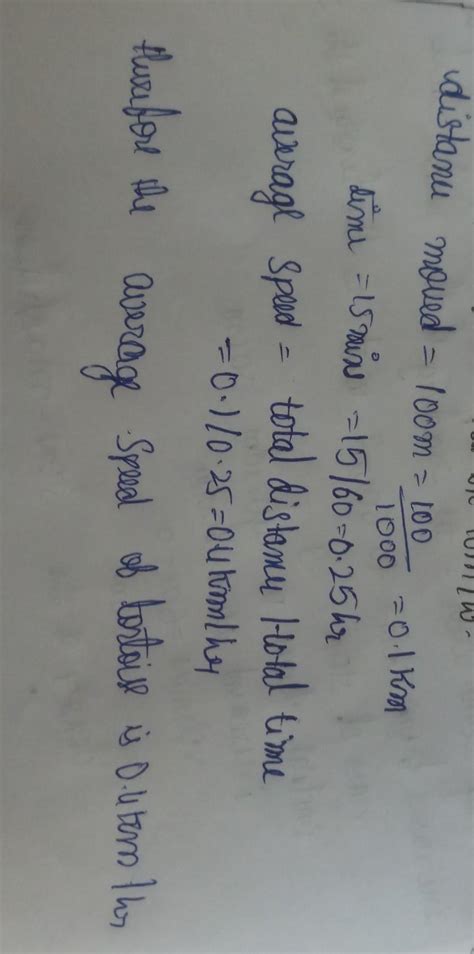 distance moved = 100m = 100/1000 = 0.1 Km
time = 15 mins = 15/60 = 0.25 hr
average speed = total distance / total time
= 0.1/0.25 = 0.4 Km/hr
therefore the average speed of tortoise is 0.4 km/hr